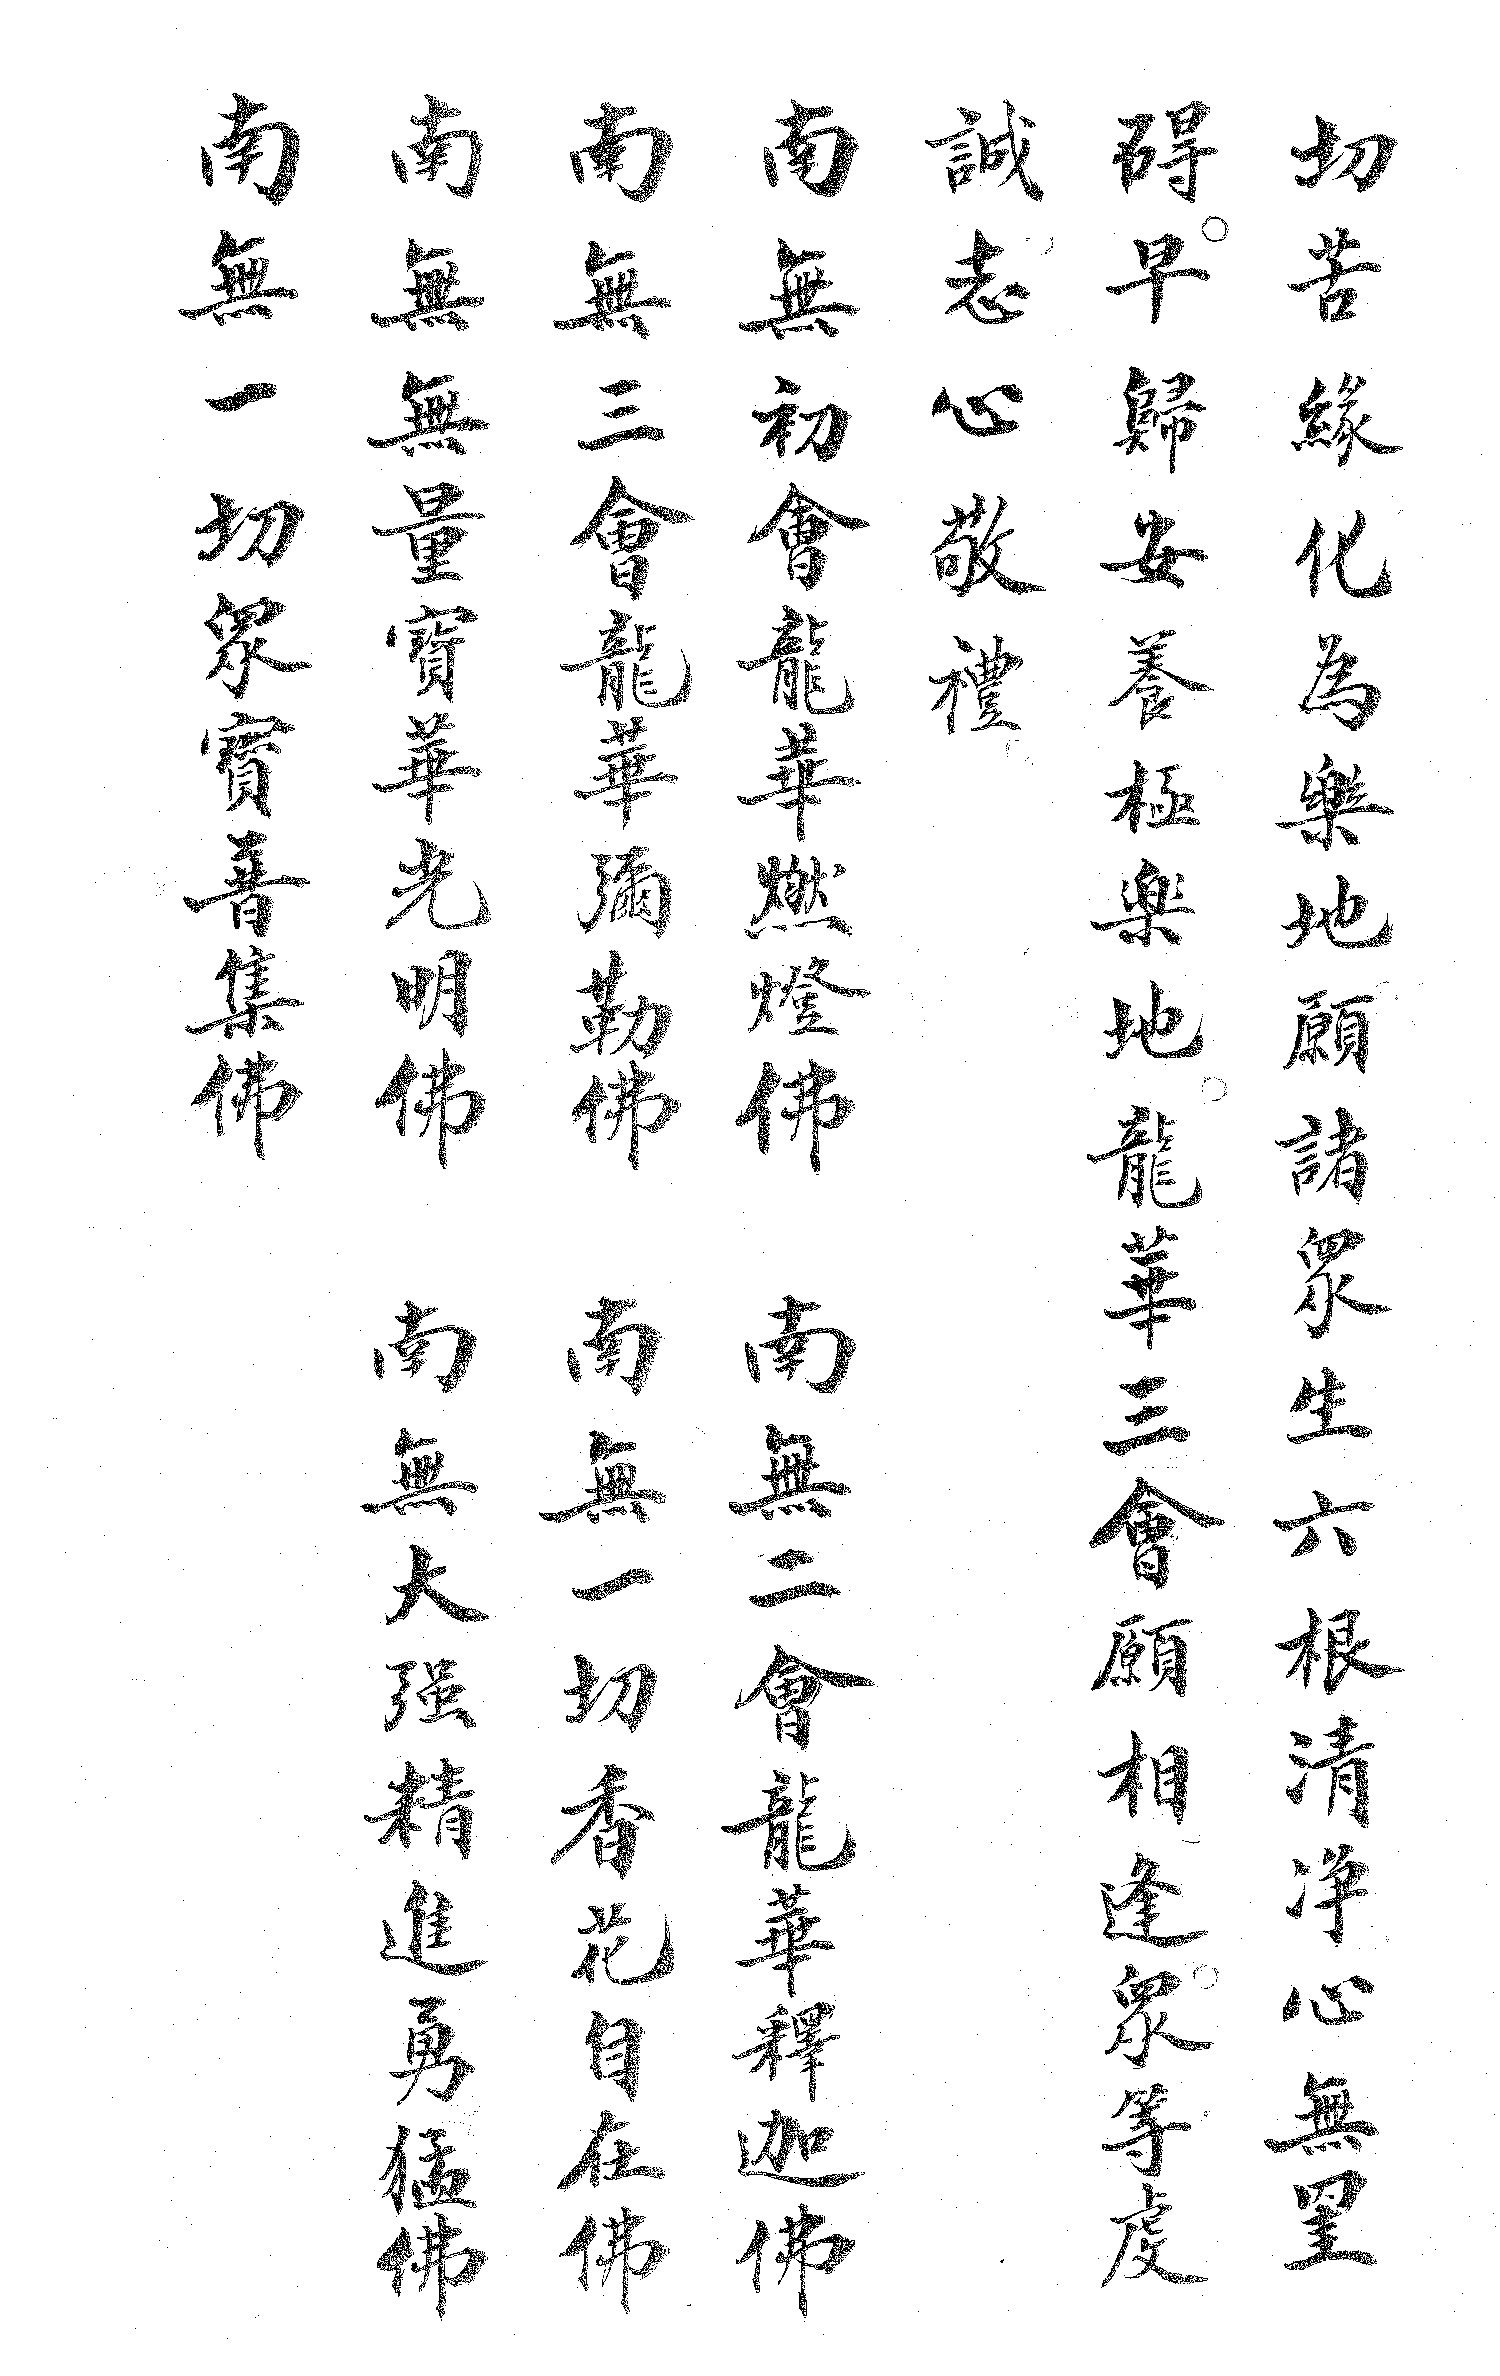 切苦緣化為樂地願諸眾生六根清淨心無罣
碍早歸安養極樂地龍華三會願相逢眾等虔
誠志心敬禮
南無初會龍華燃燈佛　南無二會龍華釋迦佛
南無三會龍華彌勒佛　南無一切香花自在佛
南無無量寶華光明佛　南無大强精進勇猛佛
南無一切眾寶普集佛